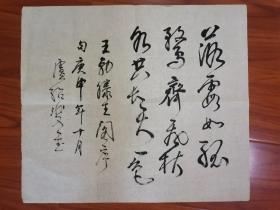 落霞與孤
鶩齊飛秋
水共長天一色
王勃滕王閣序
句庚申年十月